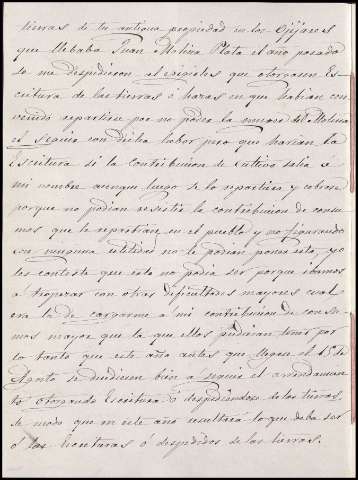 tierras de tu antigua propiedad en los Ojijares
que llebaba Juan Molina Plata el año pasado
se me despidieron al exigirles que otorgasen Es-
critura de las tierras ó hazas en que habian con-
venido repartirse por no poder la nuera del Molina
el seguir con dicha labor pero que harian la
Escritura si la Contribucion de Cultivo salia á
mi nombre aunque luego se lo repartiera y cobrase
porque no podian resistir la contribucion de consu-
mos que le repartirian en el pueblo y no figurando
con ninguna utilidad no le podian poner esto, yo
les conteste que esto no podia ser porque ibamos
á tropezar con otras dificultades mayores cual
era la de cargarme á mi contribucion de consu-
mos mayor que la que ellos pudieran tener por
lo tanto que este año antes que llegue el 15 de
Agosto se decidiesen bien á seguir el arrendamien-
to otorgando Escritura ó despidiendose de las tierras,
de modo que en este año resultará lo que deba ser
ó las Escrituras ó despedidos de las tierras.